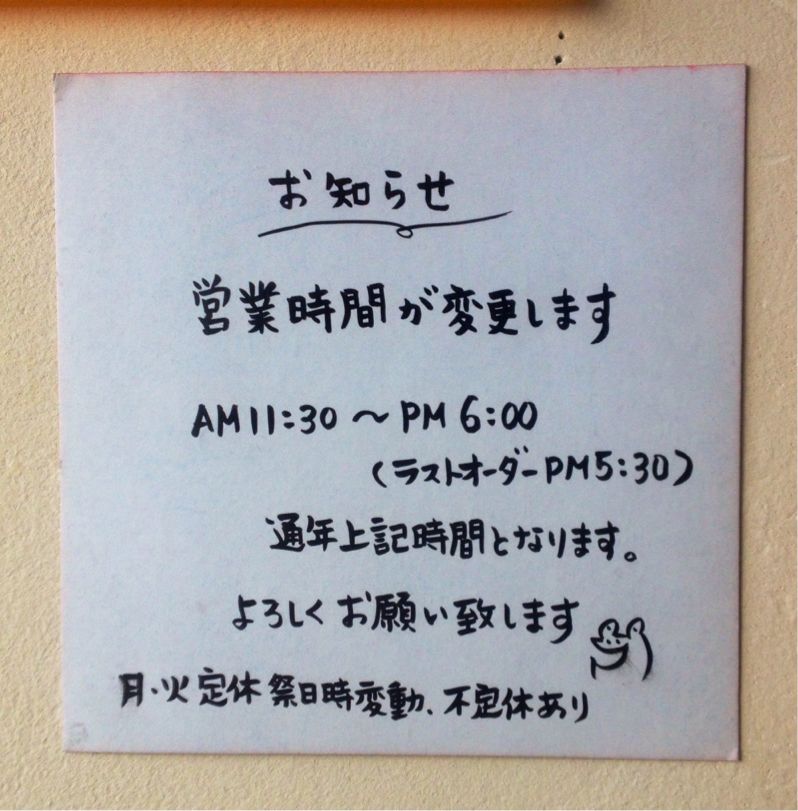 お知らせ
営業時間が変更します
AM11:30 〜 PM 6:00
(ラストオーダーPM5:30)
通年上記時間となります。
よろしくお願い致します
月・火定休祭日時変動、不定休あり